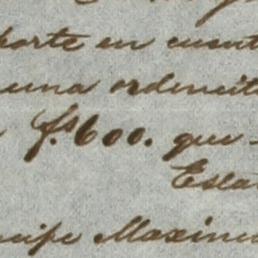 porte en cuent
una ordencit
f.s 600. que
Esta
cipe Maximi